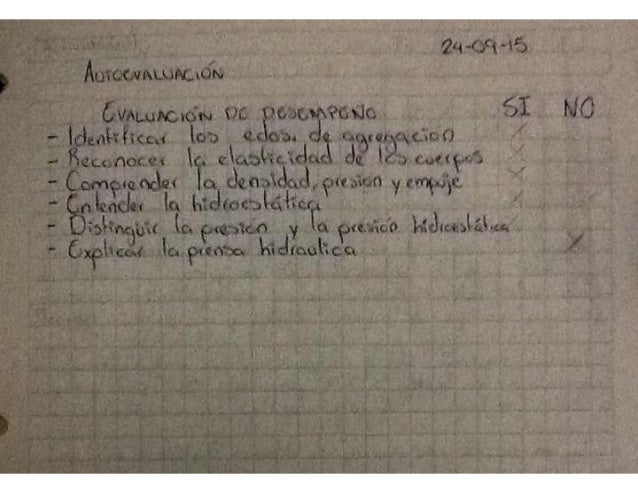 24-09-15
AUTOEVALUACIÓN
EVALUACIÓN DE DESEMPEÑO SI NO
- Identificar los edos. de agregacion X
- Reconocer la elasticidad de los cuerpos X
- Comprender la densidad, presion y empuje X
- Entender la hidroestática X
- Distinguir la presión y la presión hidroestática
- Explicar la prensa hidraulica X